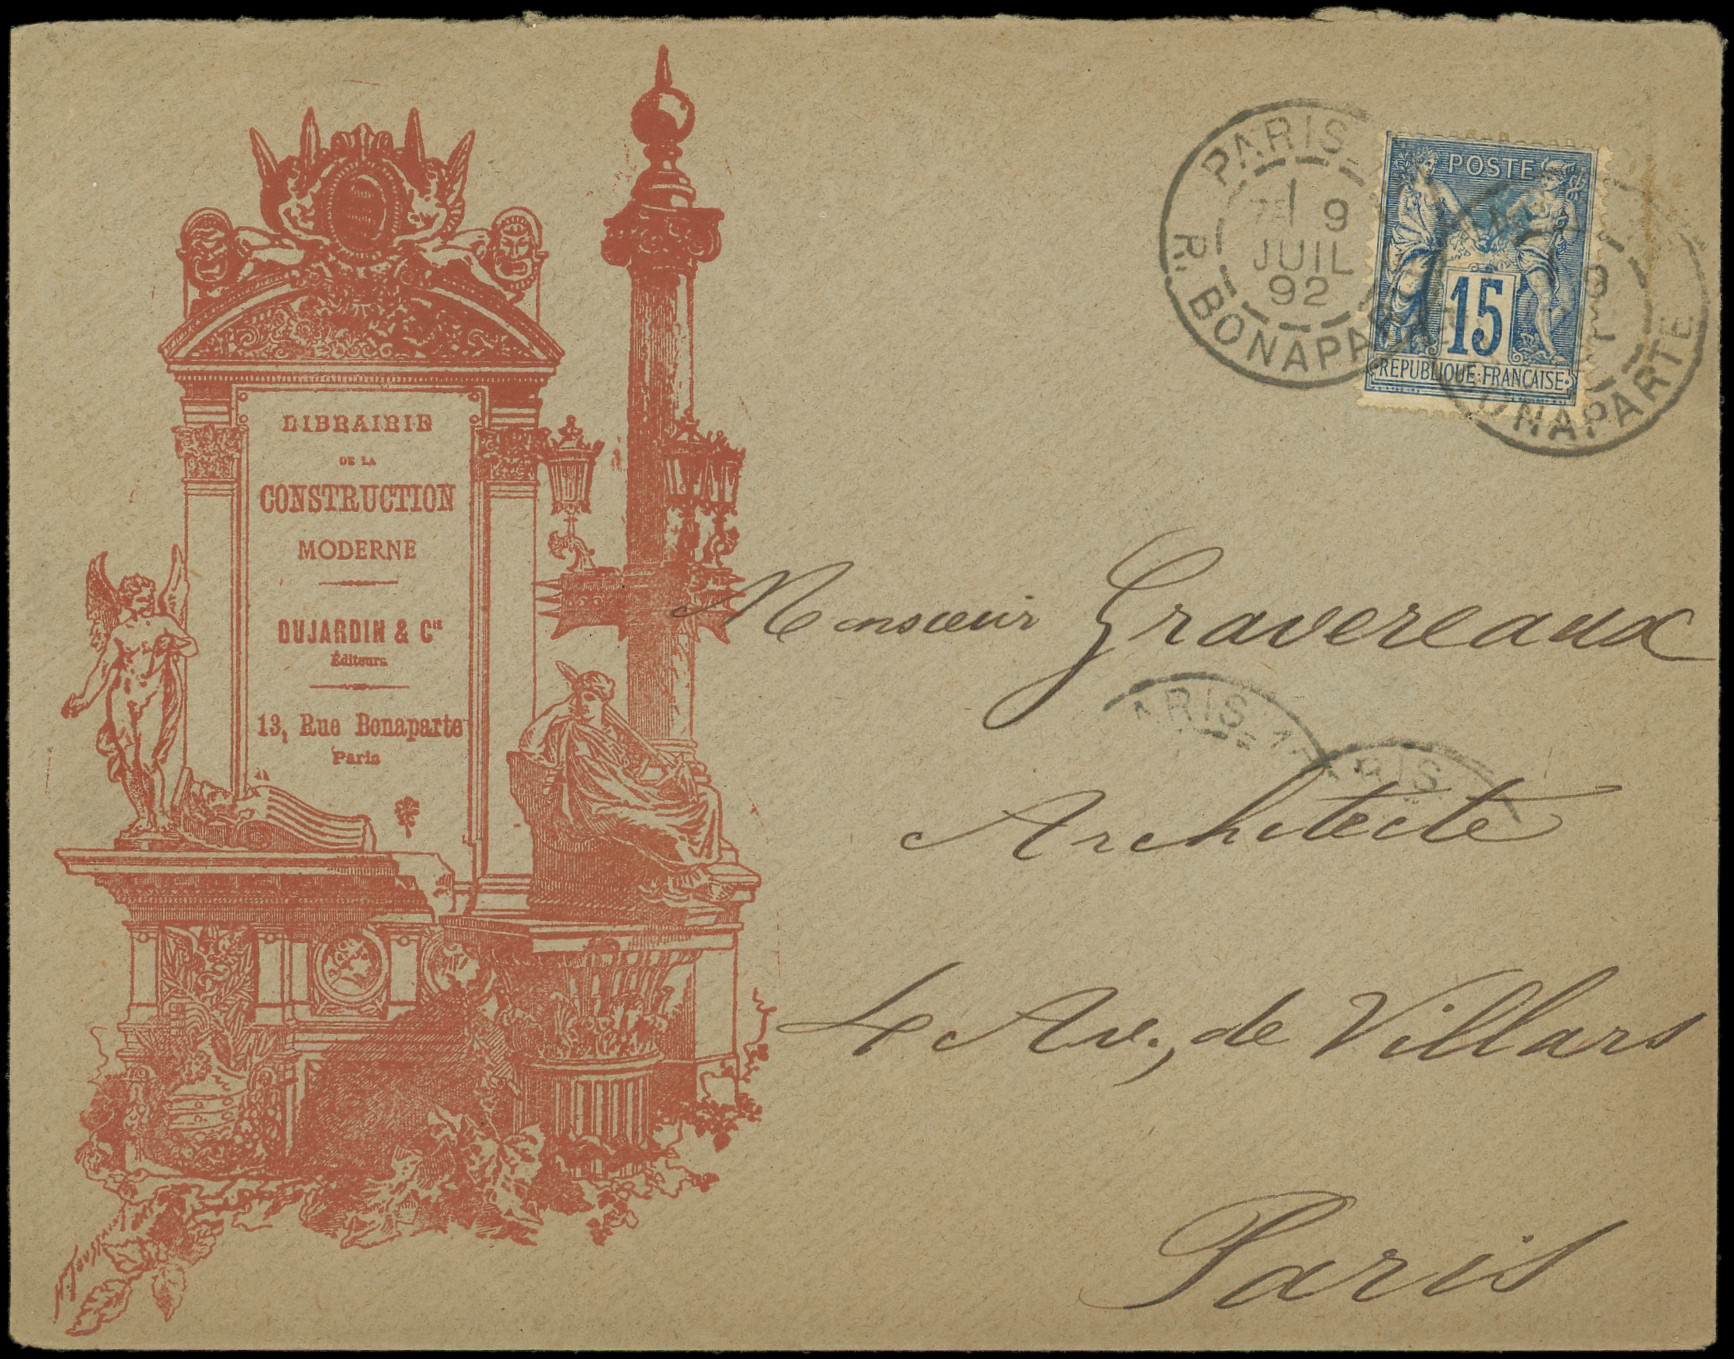 LIBRAIRIE
DE LA
CONSTRUCTION
MODERNE
DUJARDIN & Cie
Éditeurs
13, Rue Bonaparte
Paris
PARIS
9
JUIL
92
R. BONAPARTE
POSTE
15
REPUBLIQUE FRANCAISE
9
BONAPARTE
Monsieur Gravereaux
PARIS
PARIS
Architecte
4 Av., de Villars
Paris